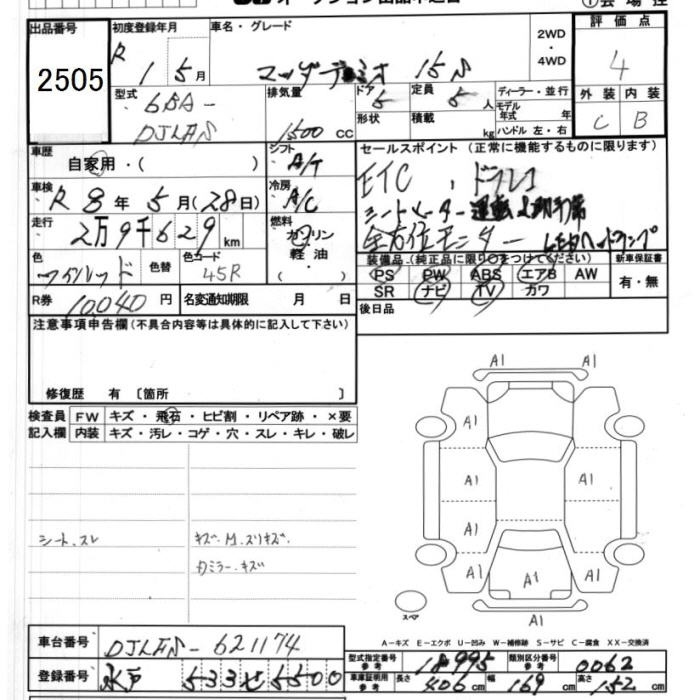 出品番号 初度登録年月 車名・グレード 2WD・4WD 評価点
2505 R 1 5月 マツダデミオ 15S 4
型式 6BA-DJLFS 排気量 1500cc ドア 5 定員 5人 ディーラー・並行 外装 内装
形状 積載 kg モデル年式 年 ハンドル 左・右 C B
車歴 自家用・( ) シフト A/T セールスポイント (正常に機能するものに限ります)
車検 R 8年 5月(28日) 冷房 A/C ETC、ドラレコ
走行 2万9千629km 燃料 ガソリン 軽油・ シートヒーター
全方位モニター LEDヘッドランプ
色 色替 色コード 45R 装備品(純正品に限り○をつけてください) 新車保証書
ワインレッド PS PW ABS エアB AW 有・無
R券 10,040円 名変通知期限 月 日 SR ナビ TV カワ
注意事項申告欄(不具合内容等は具体的に記入して下さい) 後日品
修復歴 有 〔箇所 〕
検査員 FW キズ・飛石・ヒビ割・リペア跡・×要
記入欄 内装 キズ・汚レ・コゲ・穴・スレ・キレ・破レ
シート.スレ キズ.M.スリキズ.
カミラー.キズ
A1 A1
A1 A1
A1
A1 A1 A1
A1
スペア
A-キズ E-エクボ U-凹み W-補修跡 S-サビ C-腐食 XX-交換済
車台番号 DJLFS-621174
登録番号 水戸 533せ5500
型式指定番号 参考 18995 類別区分番号 参考 0062
車庫証明用 参考 長さ 406cm 幅 169cm 高さ 152cm